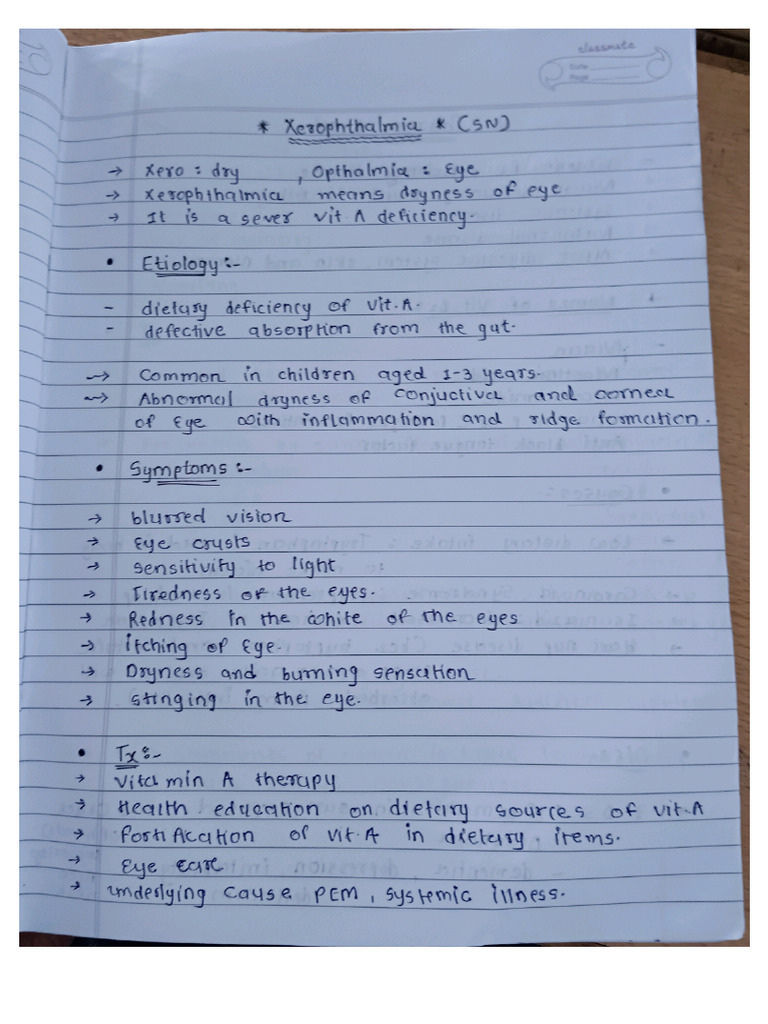 classmate
Date
Page
* Xerophthalmia * (SN)
→ Xero : dry , Opthalmia : Eye
→ Xerophthalmia means dryness of eye
→ It is a sever vit A deficiency.
• Etiology :-
- dietary deficiency of vit.A.
- defective absorption from the gut.
→ Common in children aged 1-3 years.
→ Abnormal dryness of conjuctiva and cornea
of Eye with inflammation and ridge formation.
• Symptoms :-
→ blurred vision
→ Eye crusts
→ Sensitivity to light
→ Tiredness of the eyes.
→ Redness in the white of the eyes
→ Itching of Eye.
→ Dryness and burning sensation
→ Stinging in the eye.
• Tx :-
→ Vitamin A therapy
→ Health education on dietary sources of vit.A
→ Fortification of vit.A in dietary items.
→ Eye care
→ underlying cause PEM, systemic illness.